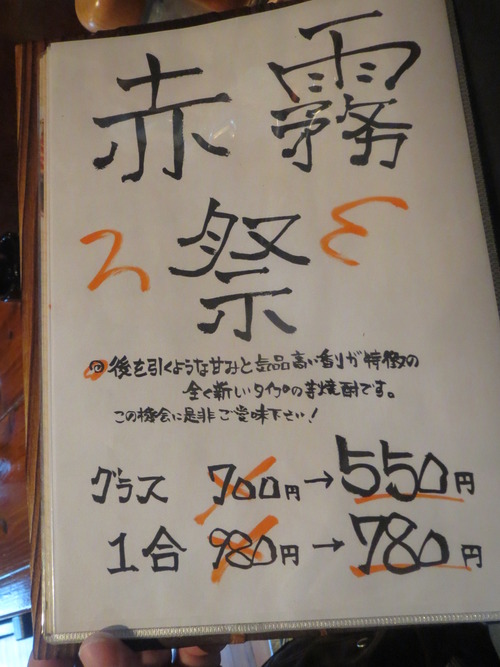 赤霧
祭
◎後を引くような甘みと気品高い香りが特徴の
全く新しいタイプの芋焼酎です。
この機会に是非ご賞味下さい！
グラス 700円→550円
1合 980円→780円